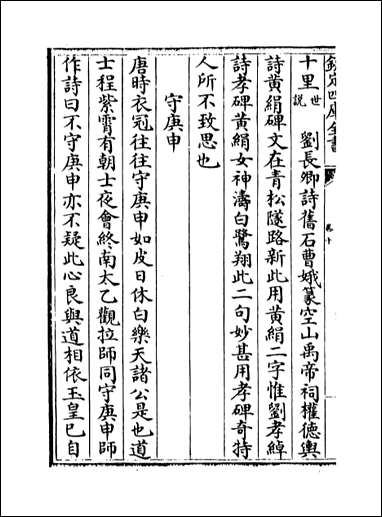 欽定四庫全書
卷十
十里世說 劉長卿詩舊石曹娥篆空山禹帝祠權德輿
詩黃絹碑文在青松隧路新此用黃絹二字惟劉孝綽
詩孝碑黃絹女神濤白鷺翔此二句妙甚用孝碑奇特
人所不致思也
守庚申
唐時衣冠往往守庚申如皮日休白樂天諸公是也道
士程紫霄有朝士夜會終南太乙觀拉師同守庚申師
作詩曰不守庚申亦不疑此心良與道相依玉皇已自